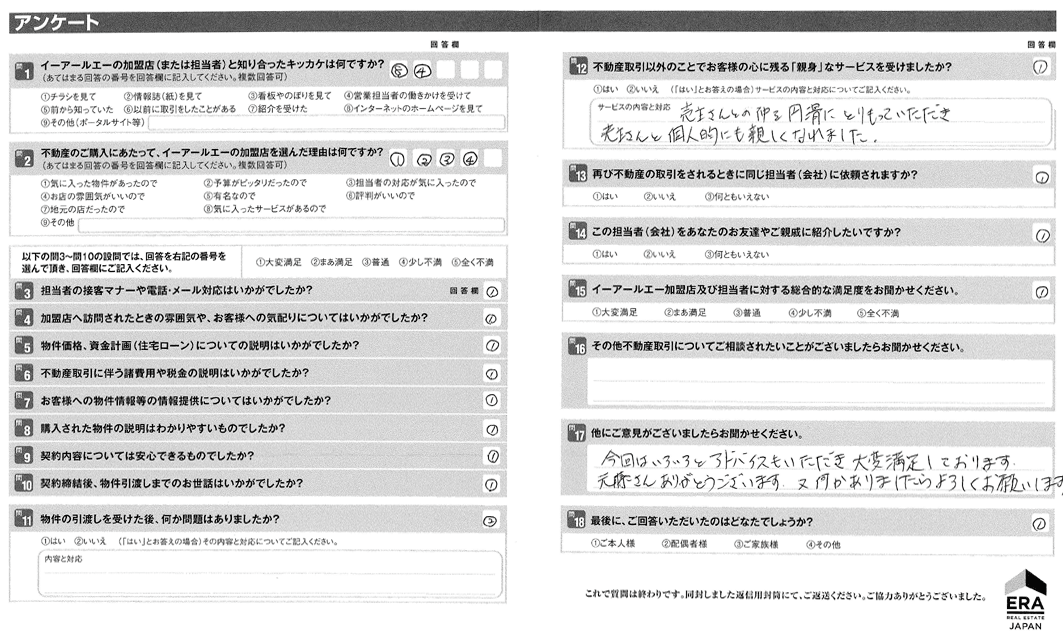 アンケート
回答欄
問1 イーアールエーの加盟店(または担当者)と知り合ったキッカケは何ですか? ⑤ ④
(あてはまる回答の番号を回答欄に記入してください。複数回答可)
①チラシを見て ②情報誌(紙)を見て ③看板やのぼりを見て ④営業担当者の働きかけを受けて
⑤前から知っていた ⑥以前に取引をしたことがある ⑦紹介を受けた ⑧インターネットのホームページを見て
⑨その他(ポータルサイト等)
問2 不動産のご購入にあたって、イーアールエーの加盟店を選んだ理由は何ですか? ① ② ③ ④
(あてはまる回答の番号を回答欄に記入してください。複数回答可)
①気に入った物件があったので ②予算がピッタリだったので ③担当者の対応が気に入ったので
④お店の雰囲気がいいので ⑤有名なので ⑥評判がいいので
⑦地元の店だったので ⑧気に入ったサービスがあるので
⑨その他
以下の問3~問10の設問では、回答を右記の番号を
選んで頂き、回答欄にご記入ください。
①大変満足 ②まあ満足 ③普通 ④少し不満 ⑤全く不満
問3 担当者の接客マナーや電話・メール対応はいかがでしたか? 回答欄 ①
問4 加盟店へ訪問されたときの雰囲気や、お客様への気配りについてはいかがでしたか? ①
問5 物件価格、資金計画(住宅ローン)についての説明はいかがでしたか? ①
問6 不動産取引に伴う諸費用や税金の説明はいかがでしたか? ①
問7 お客様への物件情報等の情報提供についてはいかがでしたか? ①
問8 購入された物件の説明はわかりやすいものでしたか? ①
問9 契約内容については安心できるものでしたか? ①
問10 契約締結後、物件引渡しまでのお世話はいかがでしたか? ①
問11 物件の引渡しを受けた後、何か問題はありましたか? ②
①はい ②いいえ (「はい」とお答えの場合)その内容と対応についてご記入ください。
内容と対応
回答欄
問12 不動産取引以外のことでお客様の心に残る「親身」なサービスを受けましたか? ①
①はい ②いいえ (「はい」とお答えの場合)サービスの内容と対応についてご記入ください。
サービスの内容と対応 売主さんとの仲を円滑にとりもっていただき
売主さんと個人的にも親しくなれました.
問13 再び不動産の取引をされるときに同じ担当者(会社)に依頼されますか? ①
①はい ②いいえ ③何ともいえない
問14 この担当者(会社)をあなたのお友達やご親戚に紹介したいですか? ①
①はい ②いいえ ③何ともいえない
問15 イーアールエー加盟店及び担当者に対する総合的な満足度をお聞かせください。 ①
①大変満足 ②まあ満足 ③普通 ④少し不満 ⑤全く不満
問16 その他不動産取引についてご相談されたいことがございましたらお聞かせください。
問17 他にご意見がございましたらお聞かせください。
今回はいろいろとアドバイスもいただき大変満足しております.
元藤さんありがとうございます. 又何かありましたらよろしくお願いします
問18 最後に、ご回答いただいたのはどなたでしょうか? ①
①ご本人様 ②配偶者様 ③ご家族様 ④その他
これで質問は終わりです。同封しました返信用封筒にて、ご返送ください。ご協力ありがとうございました。
ERA
REAL ESTATE
JAPAN